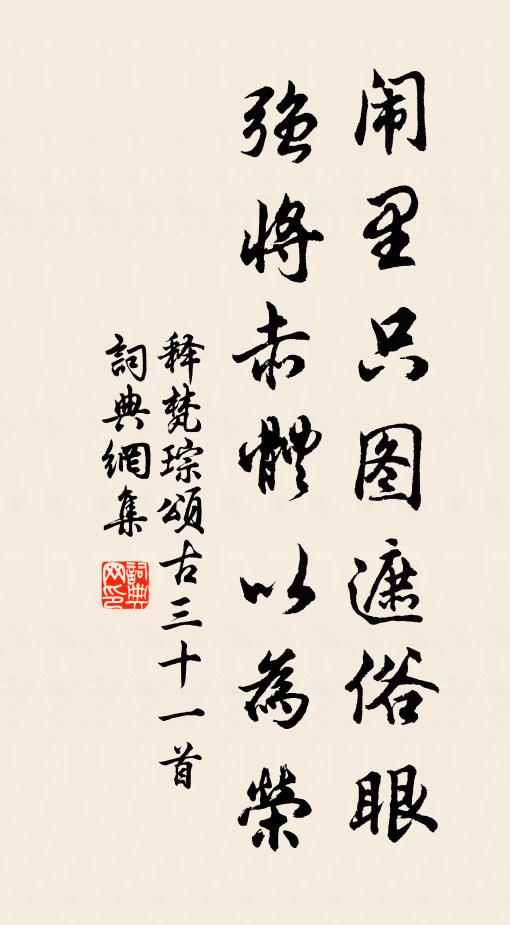 闹里只图遮俗眼
强將赤體以為榮
释梵琮頌古三十一首
詞典網集
詞典网印